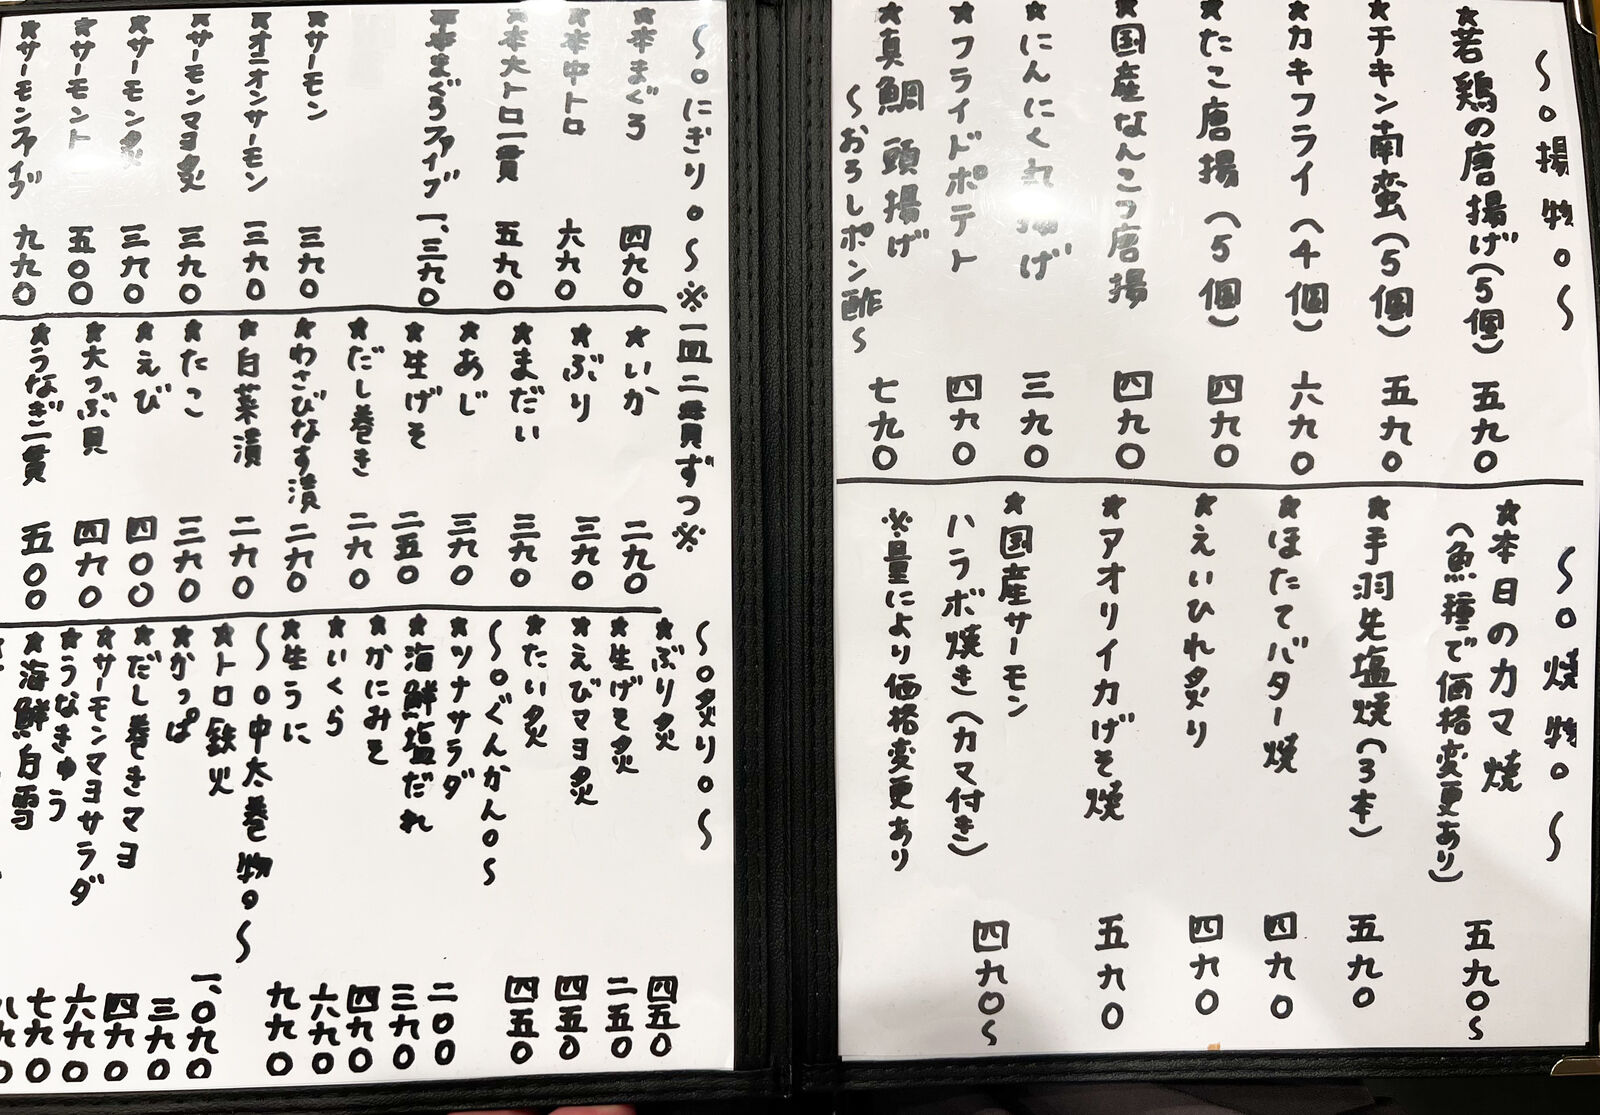 〜○揚物○〜
★若鶏の唐揚げ(5個) 五九〇
★チキン南蛮(5個) 五九〇
★カキフライ(4個) 六九〇
★たこ唐揚(5個) 四九〇
★国産なんこつ唐揚 四九〇
★にんにく丸揚げ 三九〇
★フライドポテト 四九〇
★真鯛頭揚げ 七九〇
〜おろしポン酢〜
〜○焼物○〜
★本日のカマ焼 五九〇〜
(魚種で価格変更あり)
★手羽先塩焼(3本) 五九〇
★ほたてバター焼 四九〇
★えいひれ炙り 四九〇
★アオリイカげそ焼 五九〇
★国産サーモン
ハラボ焼き(カマ付き) 四九〇〜
※量により価格変更あり
〜○にぎり○〜※一皿二貫ずつ※
★本まぐろ 四九〇
★本中トロ 六九〇
★本大トロ一貫 五九〇
★本まぐろファイブ 一、三九〇
★サーモン 三九〇
★オニオンサーモン 三九〇
★サーモンマヨ炙 三九〇
★サーモン炙 三九〇
★サーモント 五〇〇
★サーモンファイブ 九九〇
★いか 二九〇
★ぶり 三九〇
★まだい 三九〇
★あじ 三九〇
★生げそ 二五〇
★だし巻き 二九〇
★わさびなす漬 二九〇
★白菜漬 二九〇
★たこ 三九〇
★えび 四〇〇
★大つぶ貝 四九〇
★うなぎ二貫 五〇〇
〜○炙り○〜
★ぶり炙 四五〇
★生げそ炙 二五〇
★えびマヨ炙 四五〇
★たい炙 四五〇
〜○ぐんかん○〜
★ツナサラダ 二〇〇
★海鮮塩だれ 三九〇
★かにみそ 四九〇
★いくら 六九〇
★生うに 九九〇
〜○中太巻物○〜
★トロ鉄火 一、〇九〇
★かっぱ 三九〇
★だし巻きマヨ 四九〇
★サーモンマヨサラダ 六九〇
★うなきゅう 七九〇
★海鮮白雪 八九〇